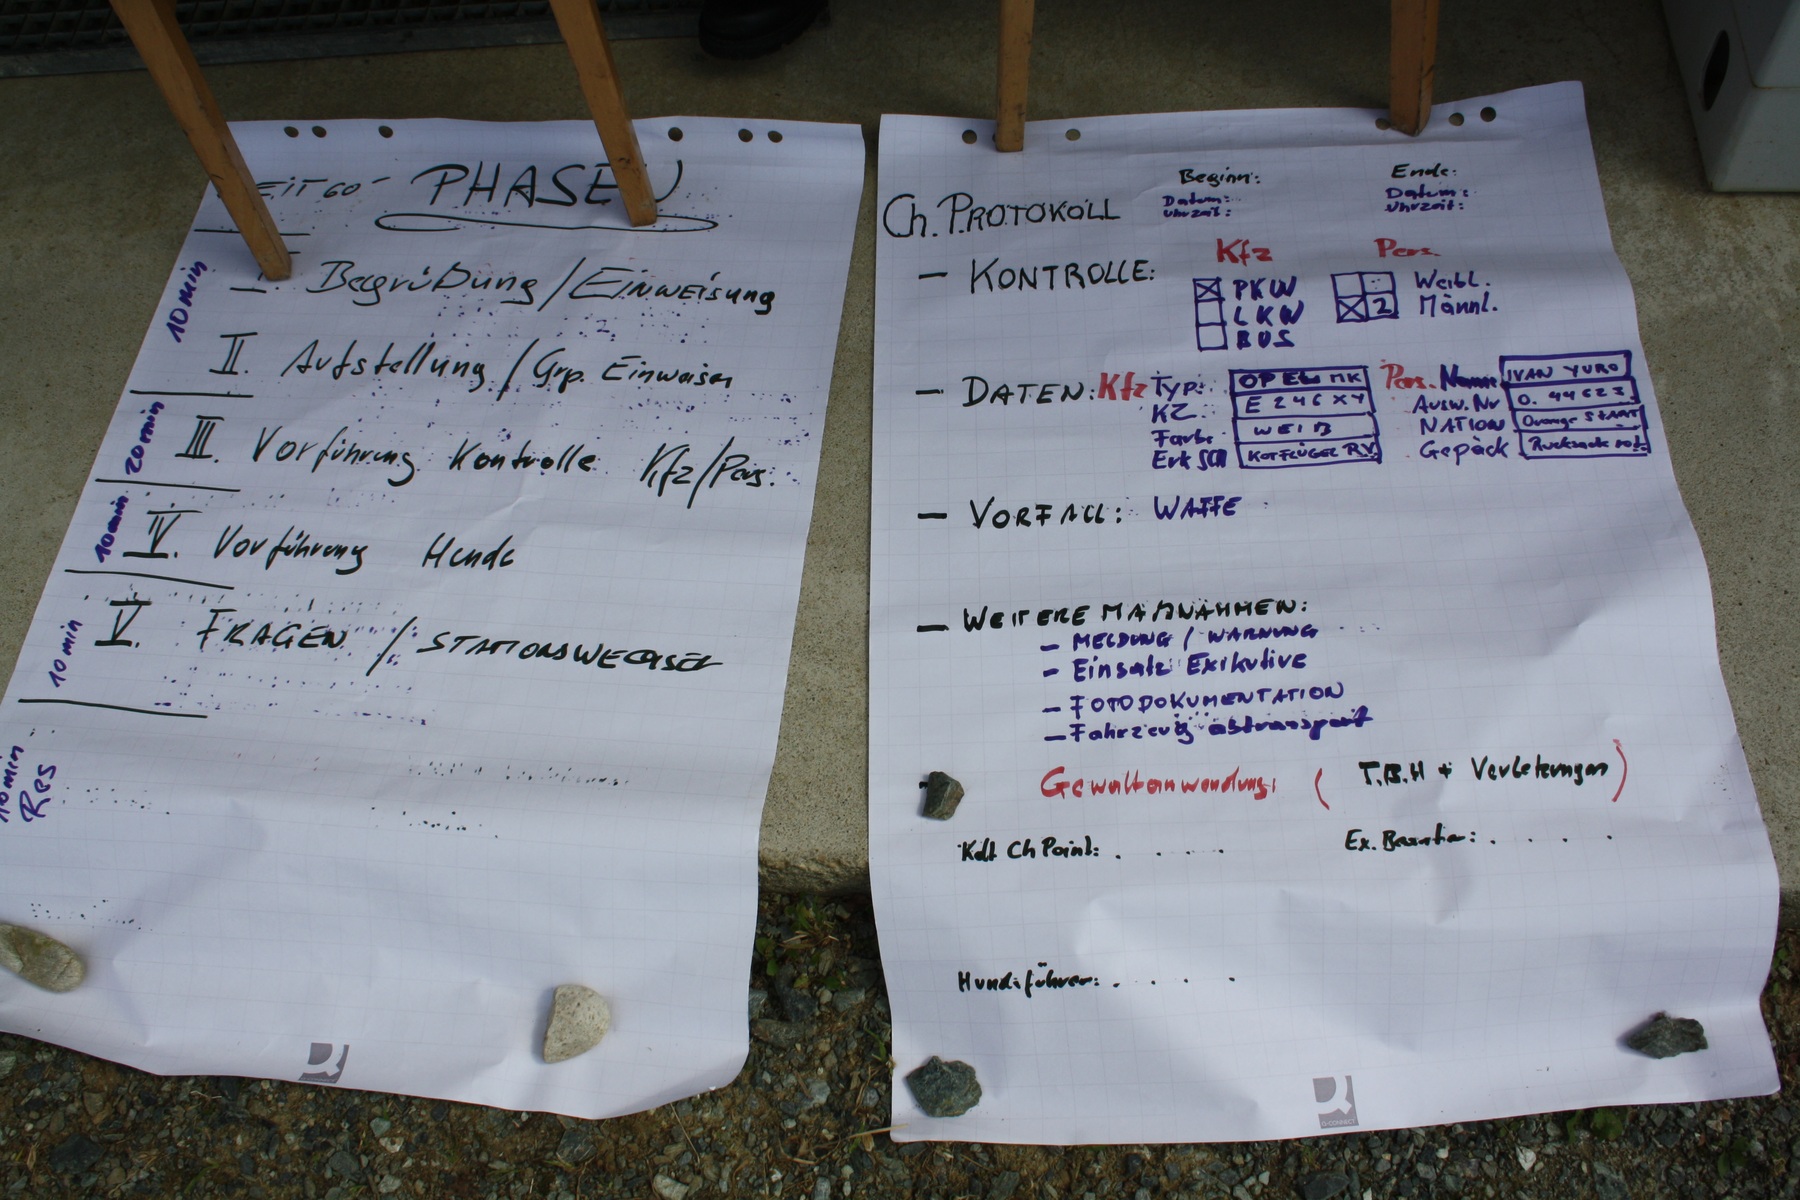 EIT 60' PHASEN
10 min
I. Begrüßung / Einweisung
II. Aufstellung / Grp. Einweisen
20 min
III. Vorführung Kontrolle Kfz/Pers.
10 min
IV. Vorführung Hunde
10 min
V. FRAGEN / STATIONSWECHSEL
10 min
Res
Ch. PROTOKOLL
Beginn:
Datum:
Uhrzeit:
Ende:
Datum:
Uhrzeit:
– KONTROLLE:
Kfz
PKW
LKW
BUS
Pers.
Weibl.
2 Männl.
– DATEN:
Kfz Typ:
KZ: E 246 XY
Farbe WEIß
KOTFLÜGEL RV.
Pers. Name IVAN YURO
Ausw. Nr 0. 44623
NATION Orange START
Gepäck Rucksack rot.
– VORFALL: WAFFE
– WEITERE MAßNAHMEN:
– MELDUNG / WARNUNG
– Einsatz Exikutive
– FOTODOKUMENTATION
– Fahrzeug abtransport
Gewaltanwendung: ( T.B.H + Verletzungen )
Kdt Ch Point: . . . .
Ex. : . . . .
Hundeführer: . . . .